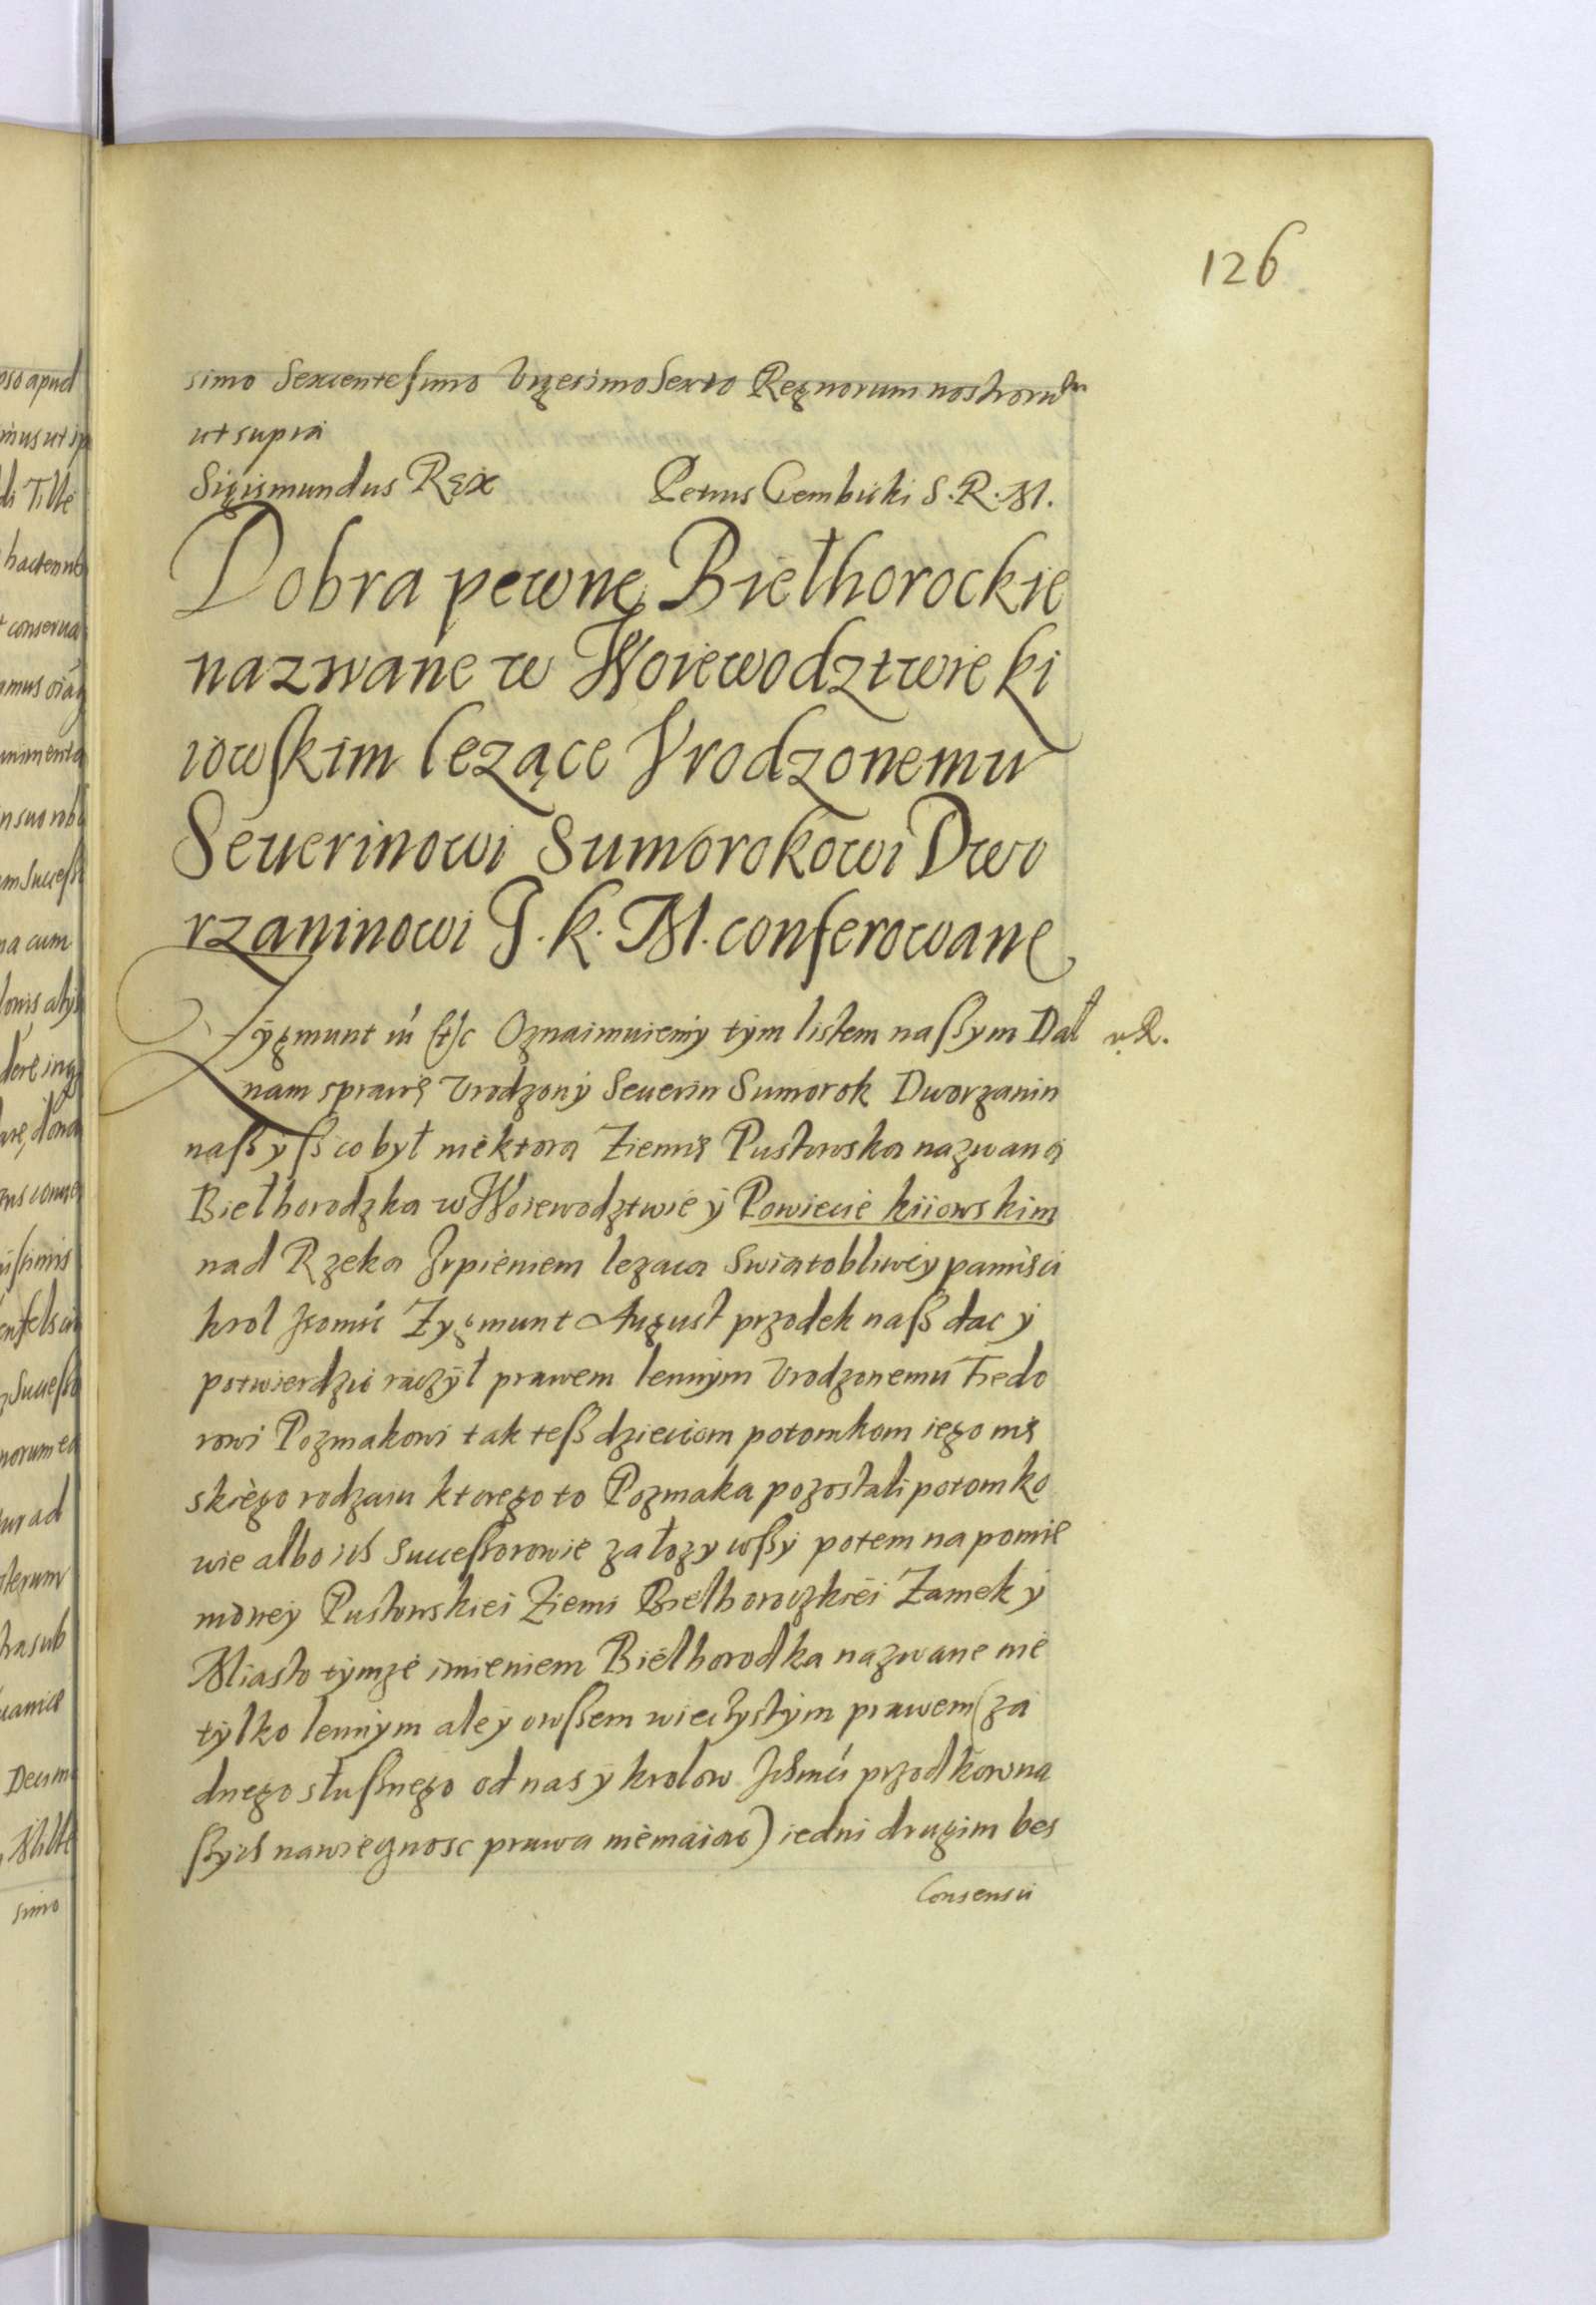 126
simo Sexcentesimo Vigesimo Sexto Regnorum nostrorum
ut supra
Sigismundus Rex Petrus Gembicki S. R. M.
Dobra pewne Biełhorockie
nazwane w Woiewodztwie ki
iowskim lezące Vrodzonemu
Seuerinowi Sumorokowi Dwo
rzaninowi J. k. M. conferowane
Zygmunt iii etc Oznaimuiemy tym listem naßym Dał
v. R.
nam sprawę Vrodzony Seuerin Sumorok Dworzanin
naßy ß co był niektora Ziemię Pustowska nazwana
Biełhorodzka w Woiewodztwie y Powiecie kiiowskim
nad Rzeka Irpieniem lezaca Swiatobliwey pamięci
krol Jeomć Zygmunt August przodek naß dac y
potwierdzić raczył prawem lennym Vrodzonemu Fiedo
rowi Pozmakowi tak teß dzieciom potomkom iego mę
skiego rodzaiu ktorego to Pozmaka pozostali potomko
wie albo ich Succeßorowie załozywßy potem na pomie
nioney Pustowskiei Ziemi Biełhoroczkiei Zamek y
Miasto tymze imieniem Biełhorodka nazwane nie
tylko lennym ale y owßem wieczystym prawem (za
dnego słußnego od nas y krolow Ichmći przodkow na
ßych na wiecznosc prawa niemaiac) iedni drugim bes
Consensu